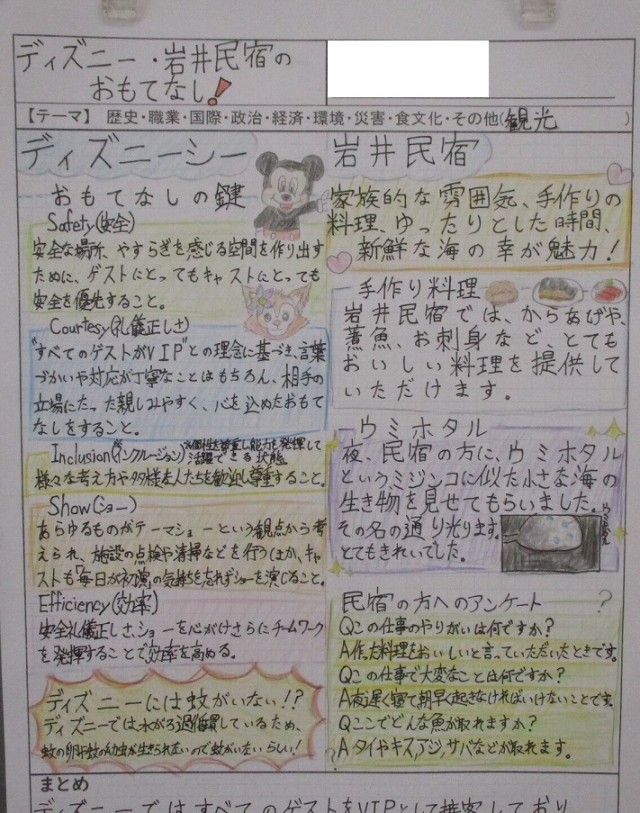 ディズニー・岩井民宿の
おもてなし!
【テーマ】歴史・職業・国際・政治・経済・環境・災害・食文化・その他(観光)
ディズニーシー
おもてなしの鍵
Safety(安全)
安全な場所、やすらぎを感じる空間を作り出す
ために、ゲストにとってもキャストにとっても
安全を優先すること。
Courtesy(礼儀正しさ)
"すべてのゲストがVIP"との理念に基づき、言葉
づかいや対応が丁寧なことはもちろん、相手の
立場にたった親しみやすく、心を込めたおもて
なしをすること。
Inclusion(インクルージョン)
個性を尊重し能力を発揮して
活躍できる状態
様々な考え方や多様な人たちを歓迎し尊重すること。
Show(ショー)
あらゆるものがテーマショーという観点から考
えられ、施設の点検や清掃などを行うほか、キャ
ストも「毎日が初演」の気持ちを忘れずショーを演じること。
Efficiency(効率)
安全礼儀正しさ、ショーを心がけさらにチームワーク
を発揮することで効率を高める。
ディズニーには蚊がいない!?
ディズニーでは水がろ過循環しているため、
蚊の卵や蚊の幼虫が生きられないので蚊がいないらしい!
岩井民宿
家族的な雰囲気、手作りの
料理、ゆったりとした時間、
新鮮な海の幸が魅力!
手作り料理
岩井民宿では、からあげや、
煮魚、お刺身など、とても
おいしい料理を提供して
いただけます。
ウミホタル
夜、民宿の方に、ウミホタル
というミジンコに似た小さな海の
生き物を見せてもらいました。
その名の通り光ります。
とてもきれいでした。
民宿の方へのアンケート ?
Qこの仕事のやりがいは何ですか?
A作った料理をおいしいと言っていただいたときです。
Qこの仕事で大変なことは何ですか?
A夜遅く寝て朝早く起きなければいけないことです。
Qここでどんな魚が取れますか?
Aタイやキス、アジ、サバなどが取れます。
まとめ
ディズニーではすべてのゲストをVIPとして接客しており